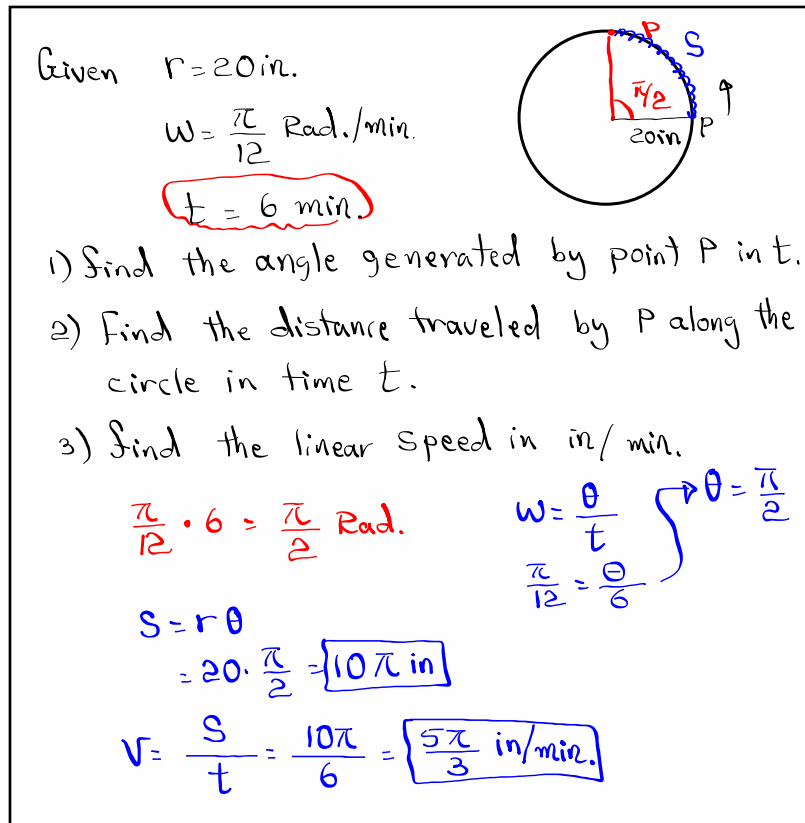 Given r = 20in.
ω = π/12 Rad./min.
t = 6 min.
P
S
π/2
20in P
1) find the angle generated by point P in t.
2) Find the distance traveled by P along the
circle in time t.
3) find the linear speed in in/min.
π/12 · 6 = π/2 Rad.
ω = θ/t
θ = π/2
π/12 = θ/6
S = rθ
= 20 · π/2 = 10π in
V = S/t = 10π/6 = 5π/3 in/min.